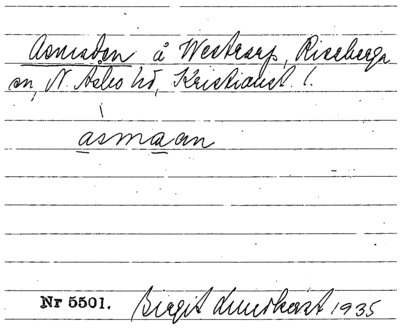 Asmadan å Westrarp, Risebergs
sn, N. Asbo hd, Kristianst. l.
asmaan
Nr 5501. Birgit Lundkvist 1935